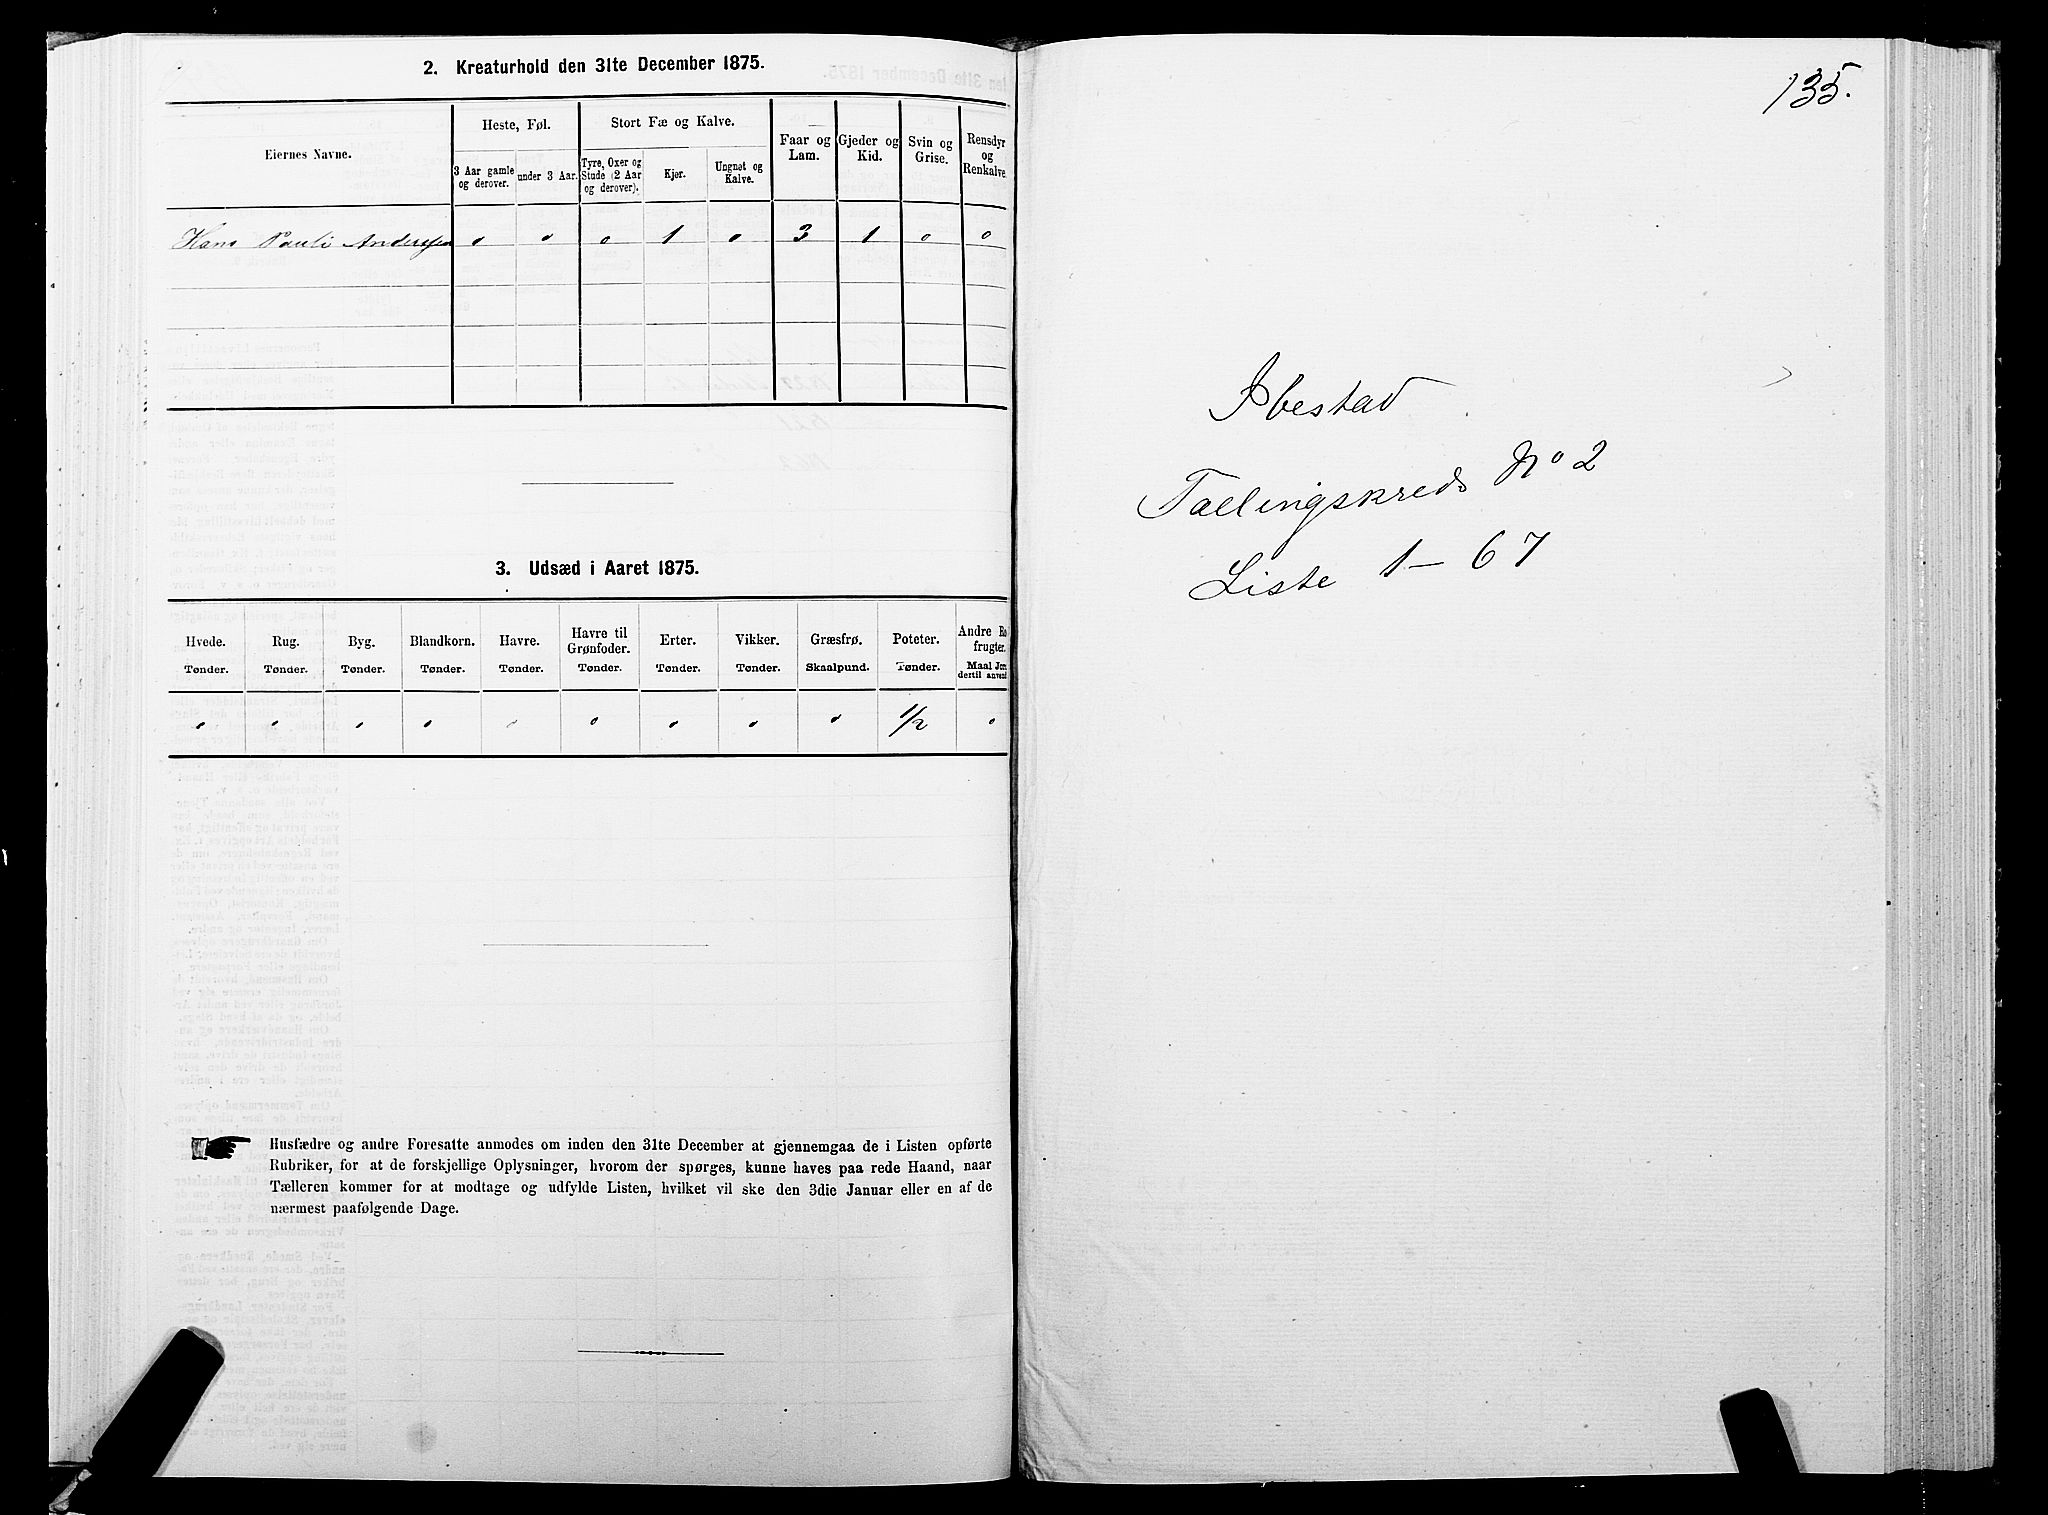 2. Kreaturhold den 31te December 1875.
Eiernes Navne.
Heste, Føl.
Stort Fæ og Kalve.
Faar og Lam.
Gjeder og Kid.
Svin og Grise.
Rensdyr og Renkalve.
3 Aar gamle og derover.
under 3 Aar.
Tyre, Oxer og Stude (2 Aar og derover).
Kjør.
Ungnøt og Kalve.
Hans Pauli Anderssen 0 0 0 1 0 3 1 0 0
3. Udsæd i Aaret 1875.
Hvede. Rug. Byg. Blandkorn. Havre. Havre til Grønfoder. Erter. Vikker. Græsfrø. Poteter. Andre Ro frugter.
Tønder. Tønder. Tønder. Tønder. Tønder. Tønder. Tønder. Tønder. Skaalpund. Tønder. Maal Jor dertil anvend
0 0 0 0 0 0 0 0 0 1/2 0
Husfædre og andre Foresatte anmodes om inden den 31te December at gjennemgaa de i Listen opførte
Rubriker, for at de forskjellige Oplysninger, hvorom der spørges, kunne haves paa rede Haand, naar
Tælleren kommer for at modtage og udfylde Listen, hvilket vil ske den 3die Januar eller en af de
nærmest paafølgende Dage.
135.
Ibestad
Tællingskreds No 2
Liste 1-67